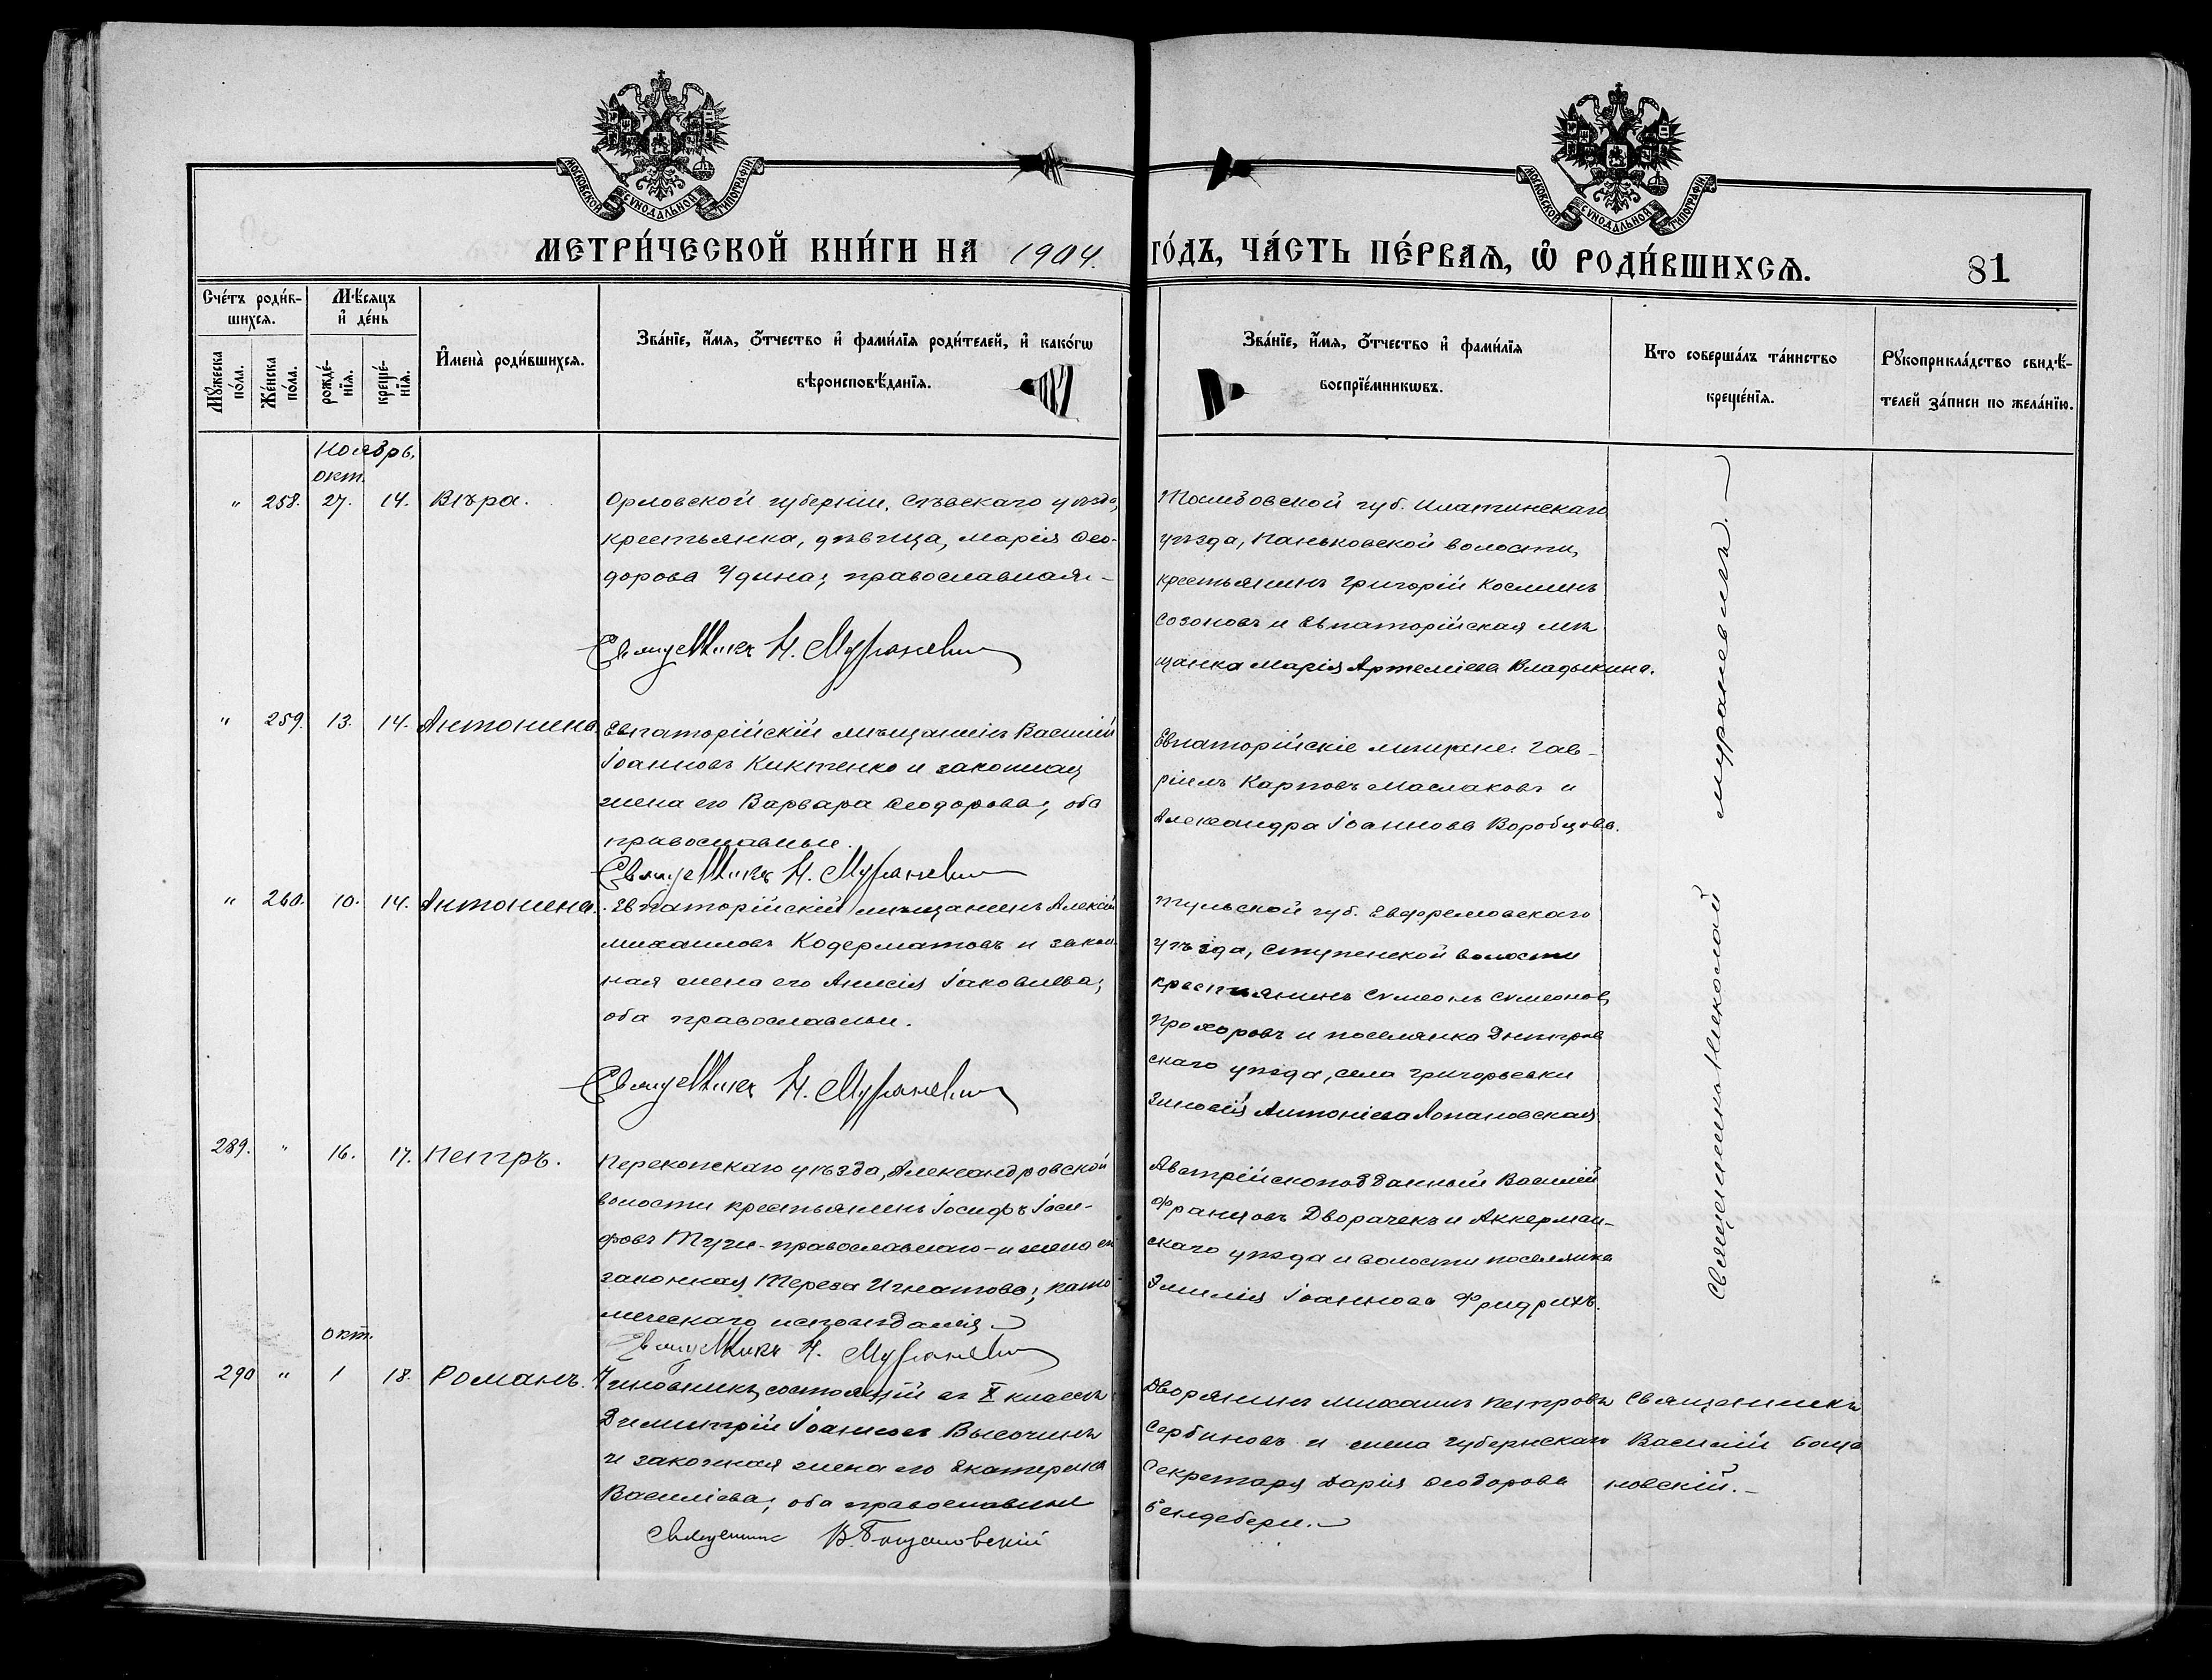 МОСКОВСКОЙ СѴНОДАЛЬНОЙ ТИПОГРАФІИ
МОСКОВСКОЙ СѴНОДАЛЬНОЙ ТИПОГРАФІИ
МЕТРИ́ЧЕСКОЙ КНИ́ГИ НА 1904. ГО́ДЪ, ЧА́СТЬ ПЕ́РВАѦ, Ѡ҆ РОДИ́ВШИХСѦ.
81
Сче́тъ роди́в-
шихсѧ.
Мꙋ́жеска по́ла.
Же́нска по́ла.
Мѣ́сѧцъ
и҆ де́нь
рожде́-
нїѧ.
креще́-
нїѧ.
И҆мена̀ роди́вшихсѧ.
Зва́нїе, и҆́мѧ, ѻ҆́тчество и҆ фами́лїѧ роди́телей, и҆ како́гѡ
вѣроисповѣ́данїѧ.
Зва́нїе, и҆́мѧ, ѻ҆́тчество и҆ фами́лїѧ
воспрїе́мникѡвъ.
Кто соверша́лъ та́инство
креще́нїѧ.
Рꙋкоприкла́дство свидѣ́-
телей за́писи по жела́нїю.
Ноябрь.
окт.
" 258. 27. 14. Вѣра.
Орловской губерніи, Сѣвскаго уѣзда,
крестьянка, дѣвица, Марія Ѳео-
дорова Удина; православная.
Священникъ Н. Мураневич
Тамбовской губ. Елатинскаго
уѣзда, Паньковской волости,
крестьянинъ Григорій Косминъ
Созоновъ и Евпаторійская мѣ
щанка Марія Артеміева Владыкина.
" 259. 13. 14. Антонина.
Евпаторійскій мѣщанинъ Василій
Іоанновъ Киктенко и законная
жена его Варвара Ѳеодорова; оба
православные.
Священникъ Н. Мураневич
Евпаторійскіе мѣщане Гав-
ріилъ Карповъ Маслаковъ и
Александра Іоаннова Воробцова.
" 260. 10. 14. Антонина.
Евпаторійскій мѣщанинъ Алексій
Михаиловъ Кодерматовъ и закон
ная жена его Анисія Іаковлева;
оба православные.
Священникъ Н. Мураневич
Тульской губ. Ефремовскаго
уѣзда, Ступенской волости
крестьянинъ Сѵмеонъ Сѵмеоновъ
Прохоровъ и поселянка Днѣпров
скаго уѣзда, села Григорьевки
Зиновія Антоніева Лопановская.
289. " 16. 17. Петръ.
Перекопскаго уѣзда, Александровской
волости крестьянинъ Іосифъ Іоси-
фовъ Тучи - православнаго - и жена его
законная Тереза Игнатова; като
лическаго исповѣданія
Священникъ Н. Мураневич
Австрійскоподданный Василій
Францовъ Дворачекъ и Аккерман-
скаго уѣзда и волости поселянка
Эмилія Іоаннова Фридрихъ.
Священникъ Николай Мураневичъ.
окт.
290 " 1 18. Романъ.
Чиновникъ, состоящій въ X классѣ
Димитрій Іоанновъ Высочинъ
и законная жена его Екатерина
Василіева; оба православные
Священникъ В. Бощановскій
Дворянинъ Михаилъ Петровъ
Сербиновъ и жена Губернскаго
Секретаря Дарія Ѳеодорова
Бендебери.
Священникъ
Василій Боща
новскій.